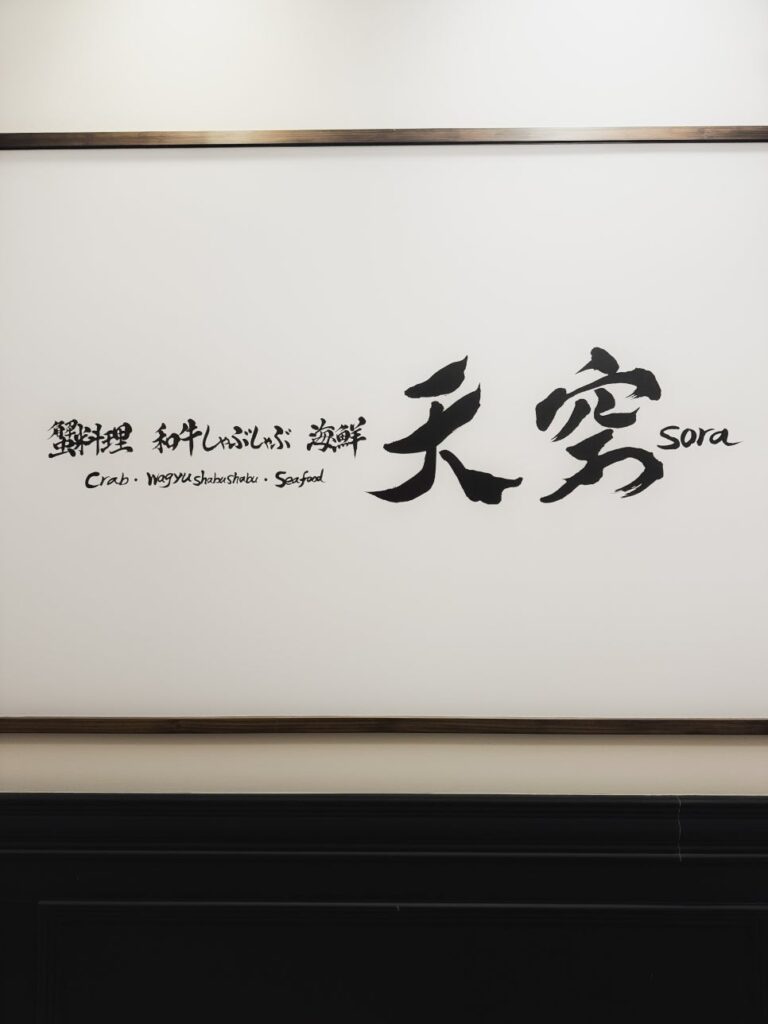 蟹料理 和牛しゃぶしゃぶ 海鮮 天穹 sora
Crab・Wagyu shabushabu・Seafood